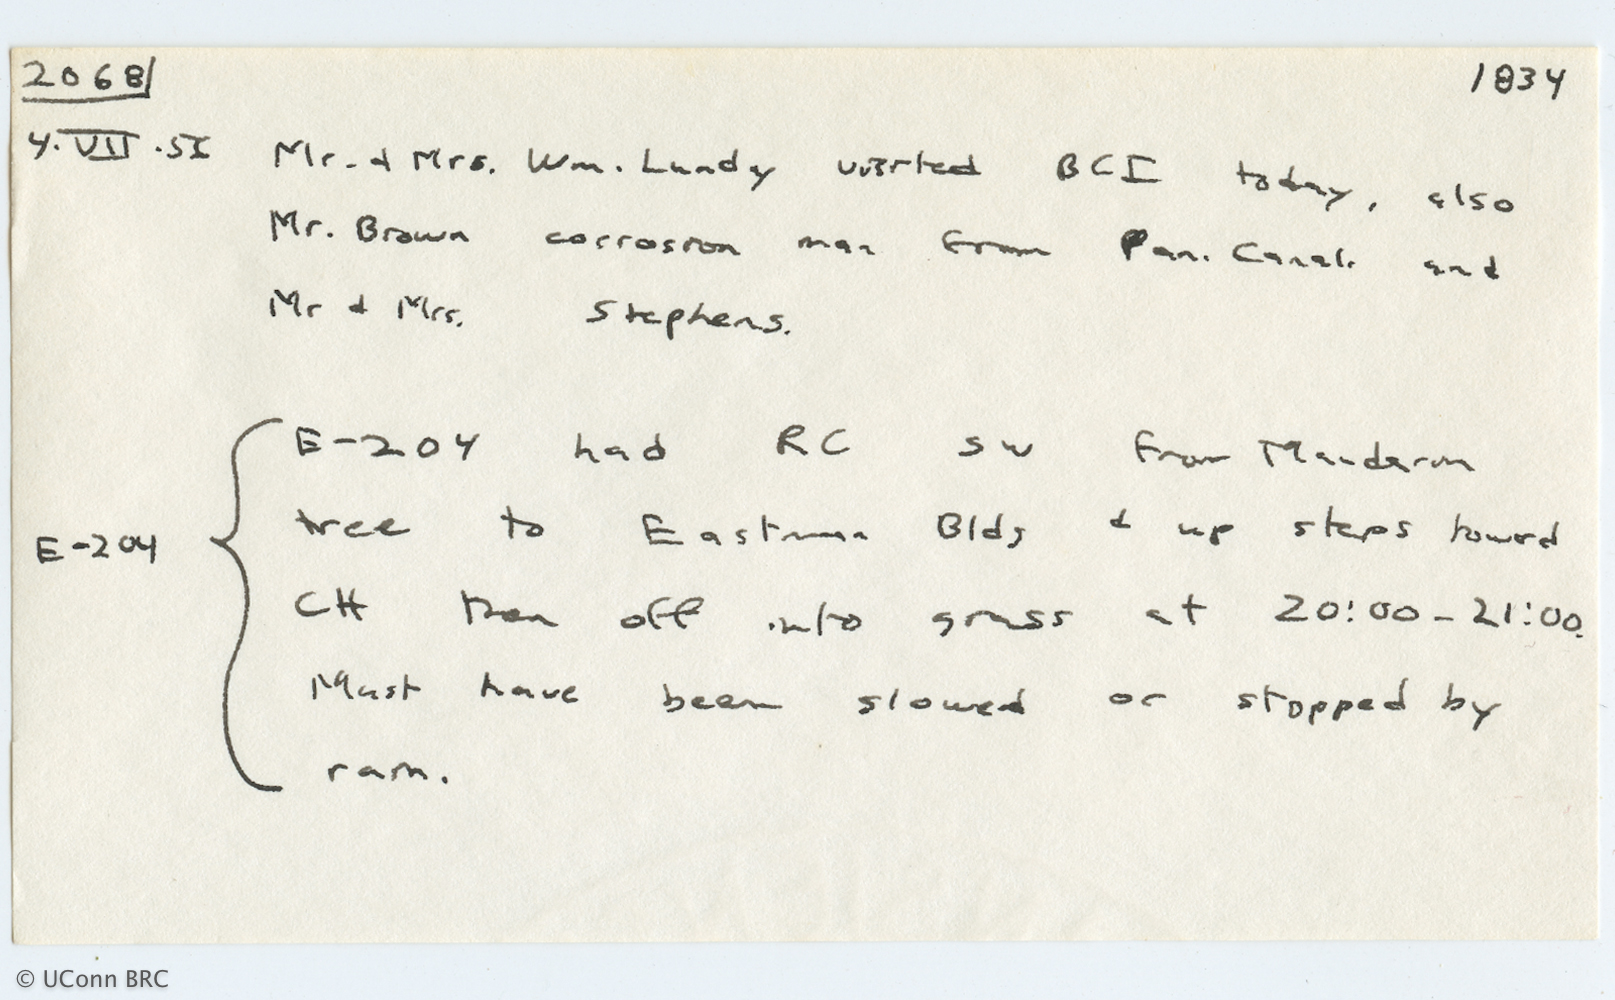 2068 1834
4.VII.51 Mr. & Mrs. Wm. Lundy visited BCI today, also
Mr. Brown corrosion man from Pan. Canal. and
Mr & Mrs. Stephens.
E-204 had RC SW from Mandarin
tree to Eastman Bldg & up steps toward
E-204
CH then off into grass at 20:00-21:00.
Must have been slowed or stopped by
rain.
© UConn BRC